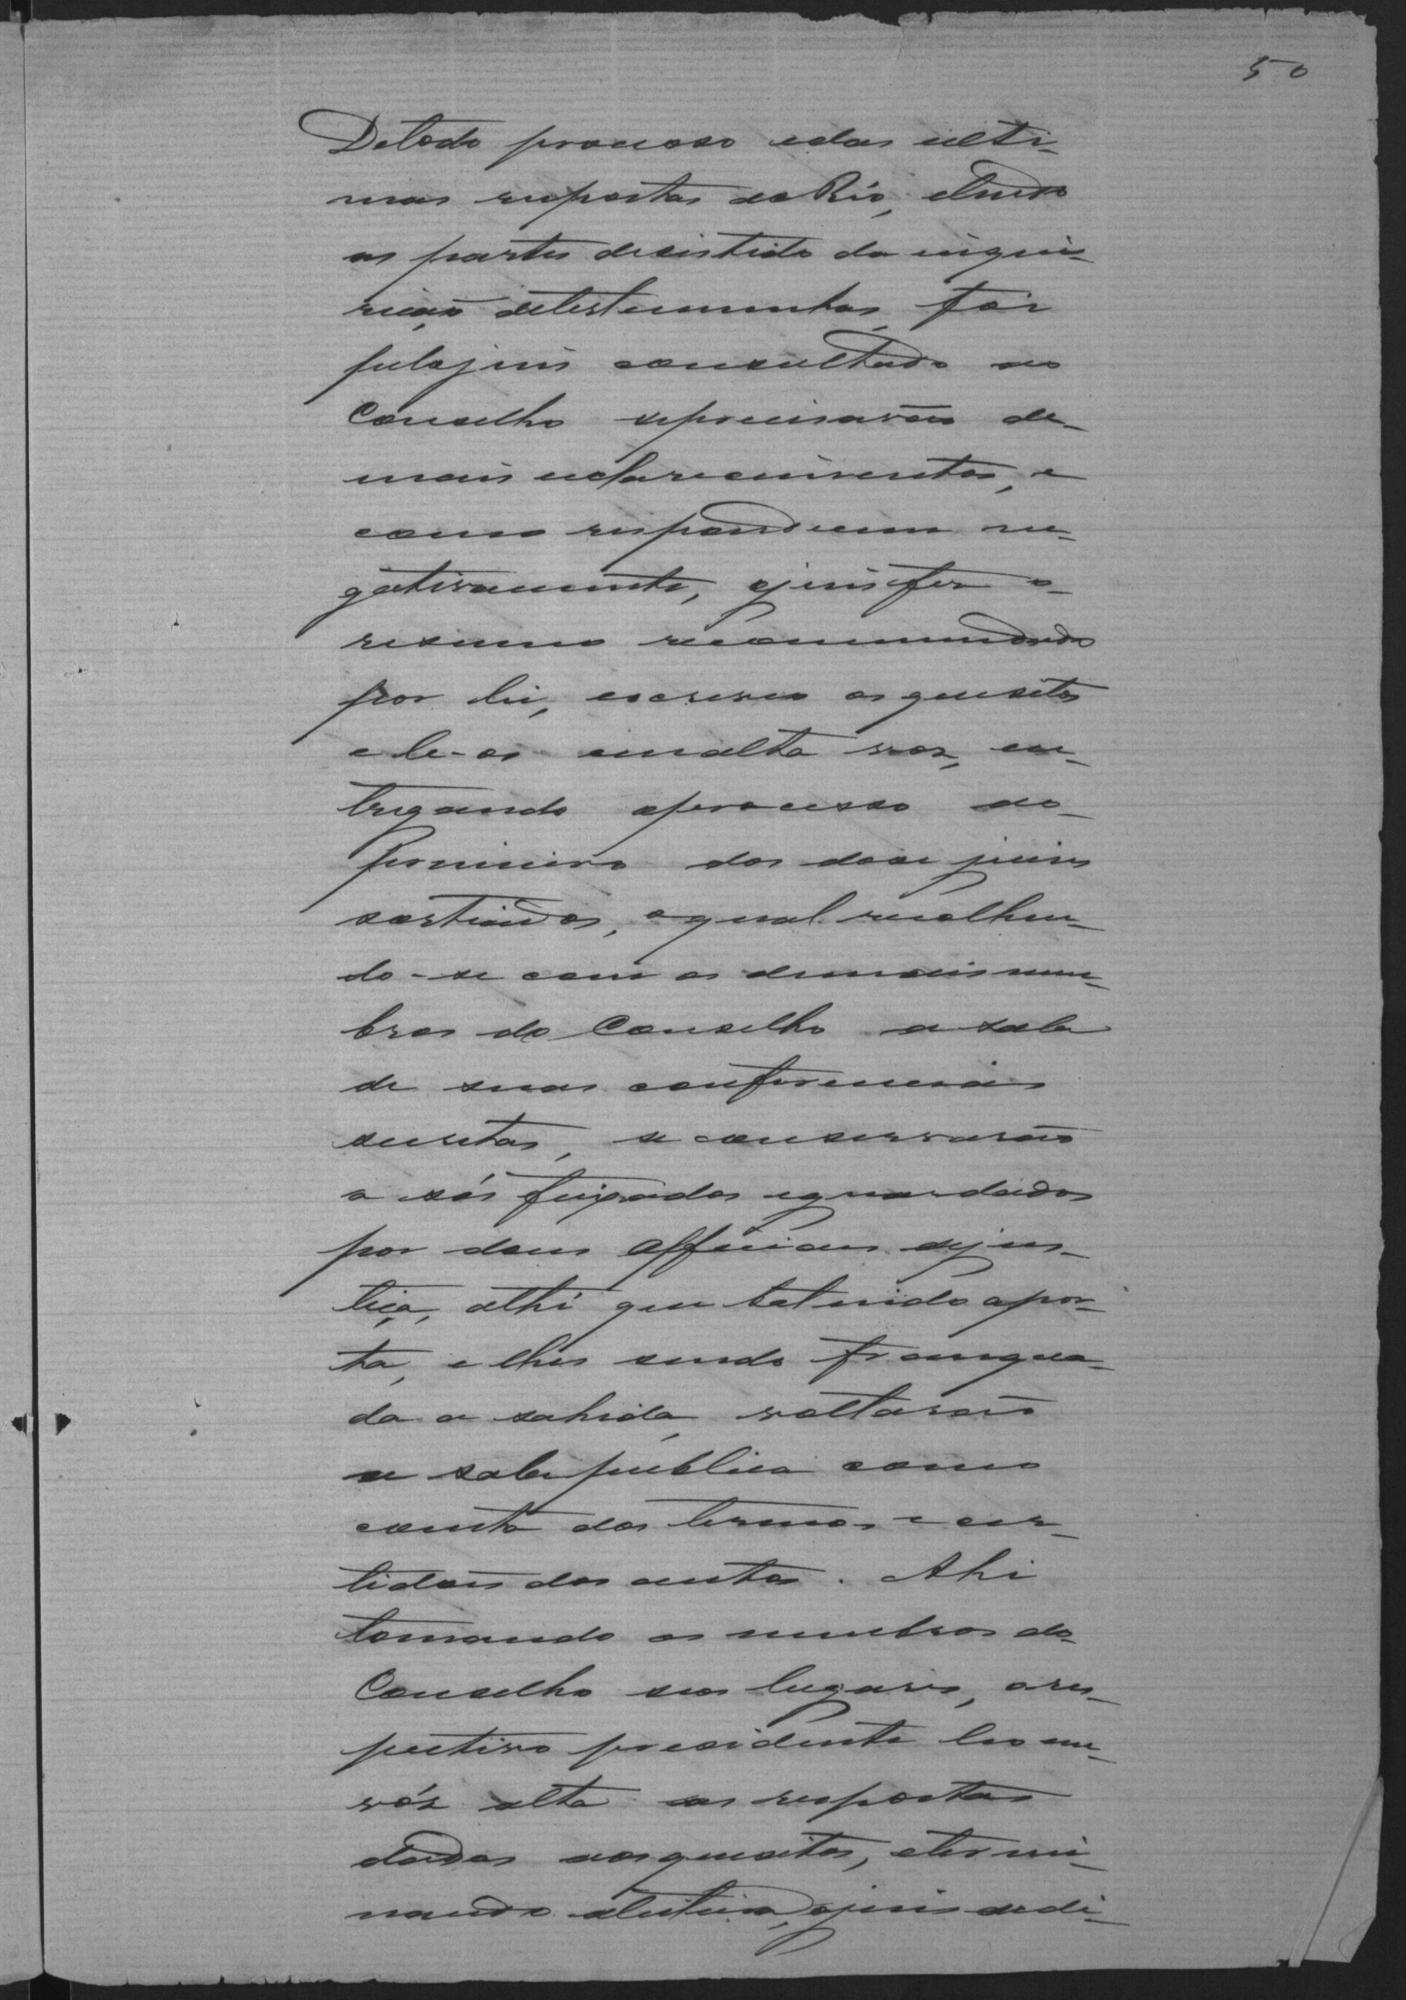 50
Detodo processo edas ulti-
mas respostas do Réo, etendo
as partes desistido da inqui-
rição detestemunhas, foi
pelojuis consultado ao
Conselho seprecisavão de
mais esclarecimentos, e
como responderem ne-
gativamente, ojuis fes o
resumo recommendado
por lei, escreveo os quesitos
e le-os emalta voz, en-
tregando oprocesso ao
primeiro dos dose juises
sorteados, oqual recolhen-
do-se com os demais mem-
bros do Conselho a sala
de suas conferencias
secretas, se conservarão
a sós feixados eguardados
por dous Officiaes dejus-
tiça, athé que batendo apor-
ta, e lhes sendo franquea-
da a sahida, voltarão
a sala publica como
consta dos termos e cer-
tidões dos autos. Ahi
tomando os membros do
Conselho seos lugares, ores-
pectivo presidente leo em
vóz alta as respostas
dadas aos quesitos, etermi-
nando aleitura, ojuis dedi-